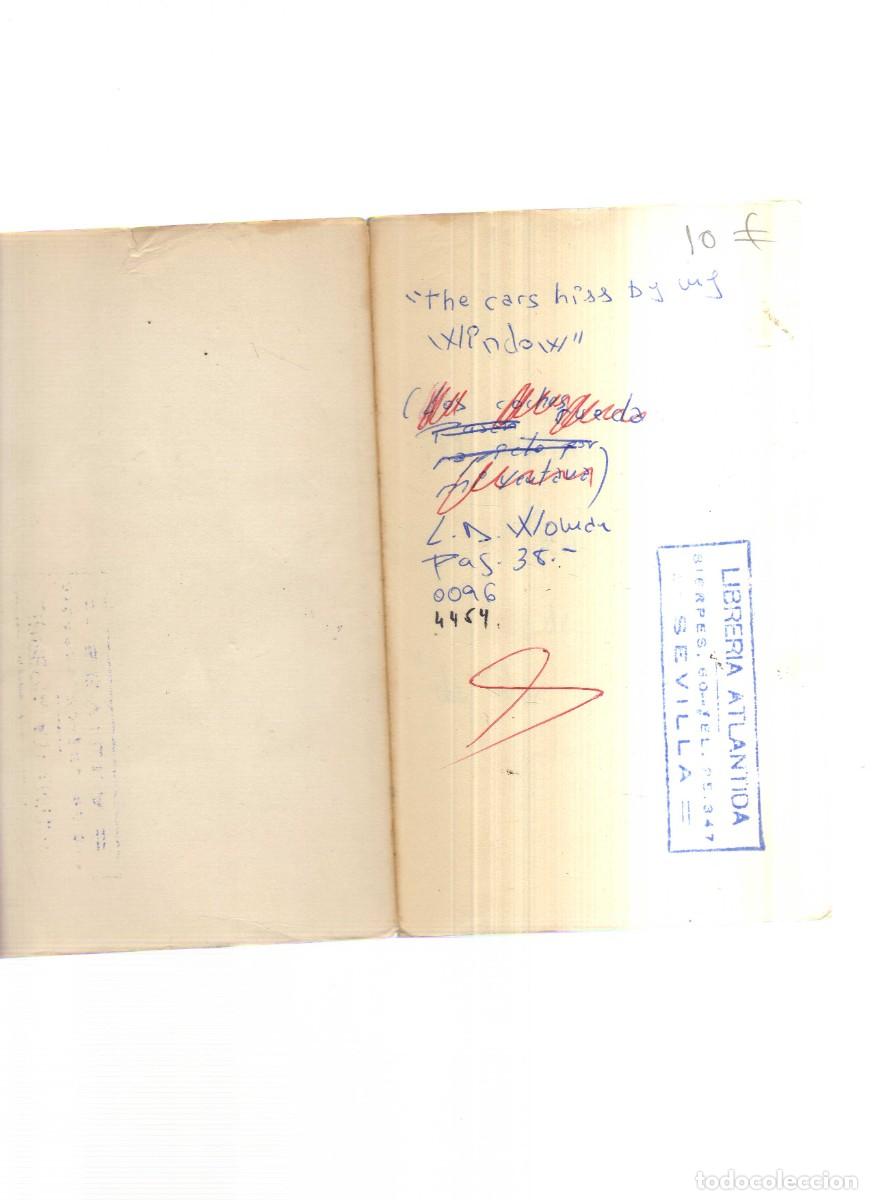 10 €
"the cars hiss by my
window"
(Los coches
Pasan
por
mi ventana)
L.A. Woman
Pag. 38.-
0096
4454.
LIBRERIA ATLANTIDA
SIERPES, 60-TEL. 25.347
= SEVILLA =
todocoleccion